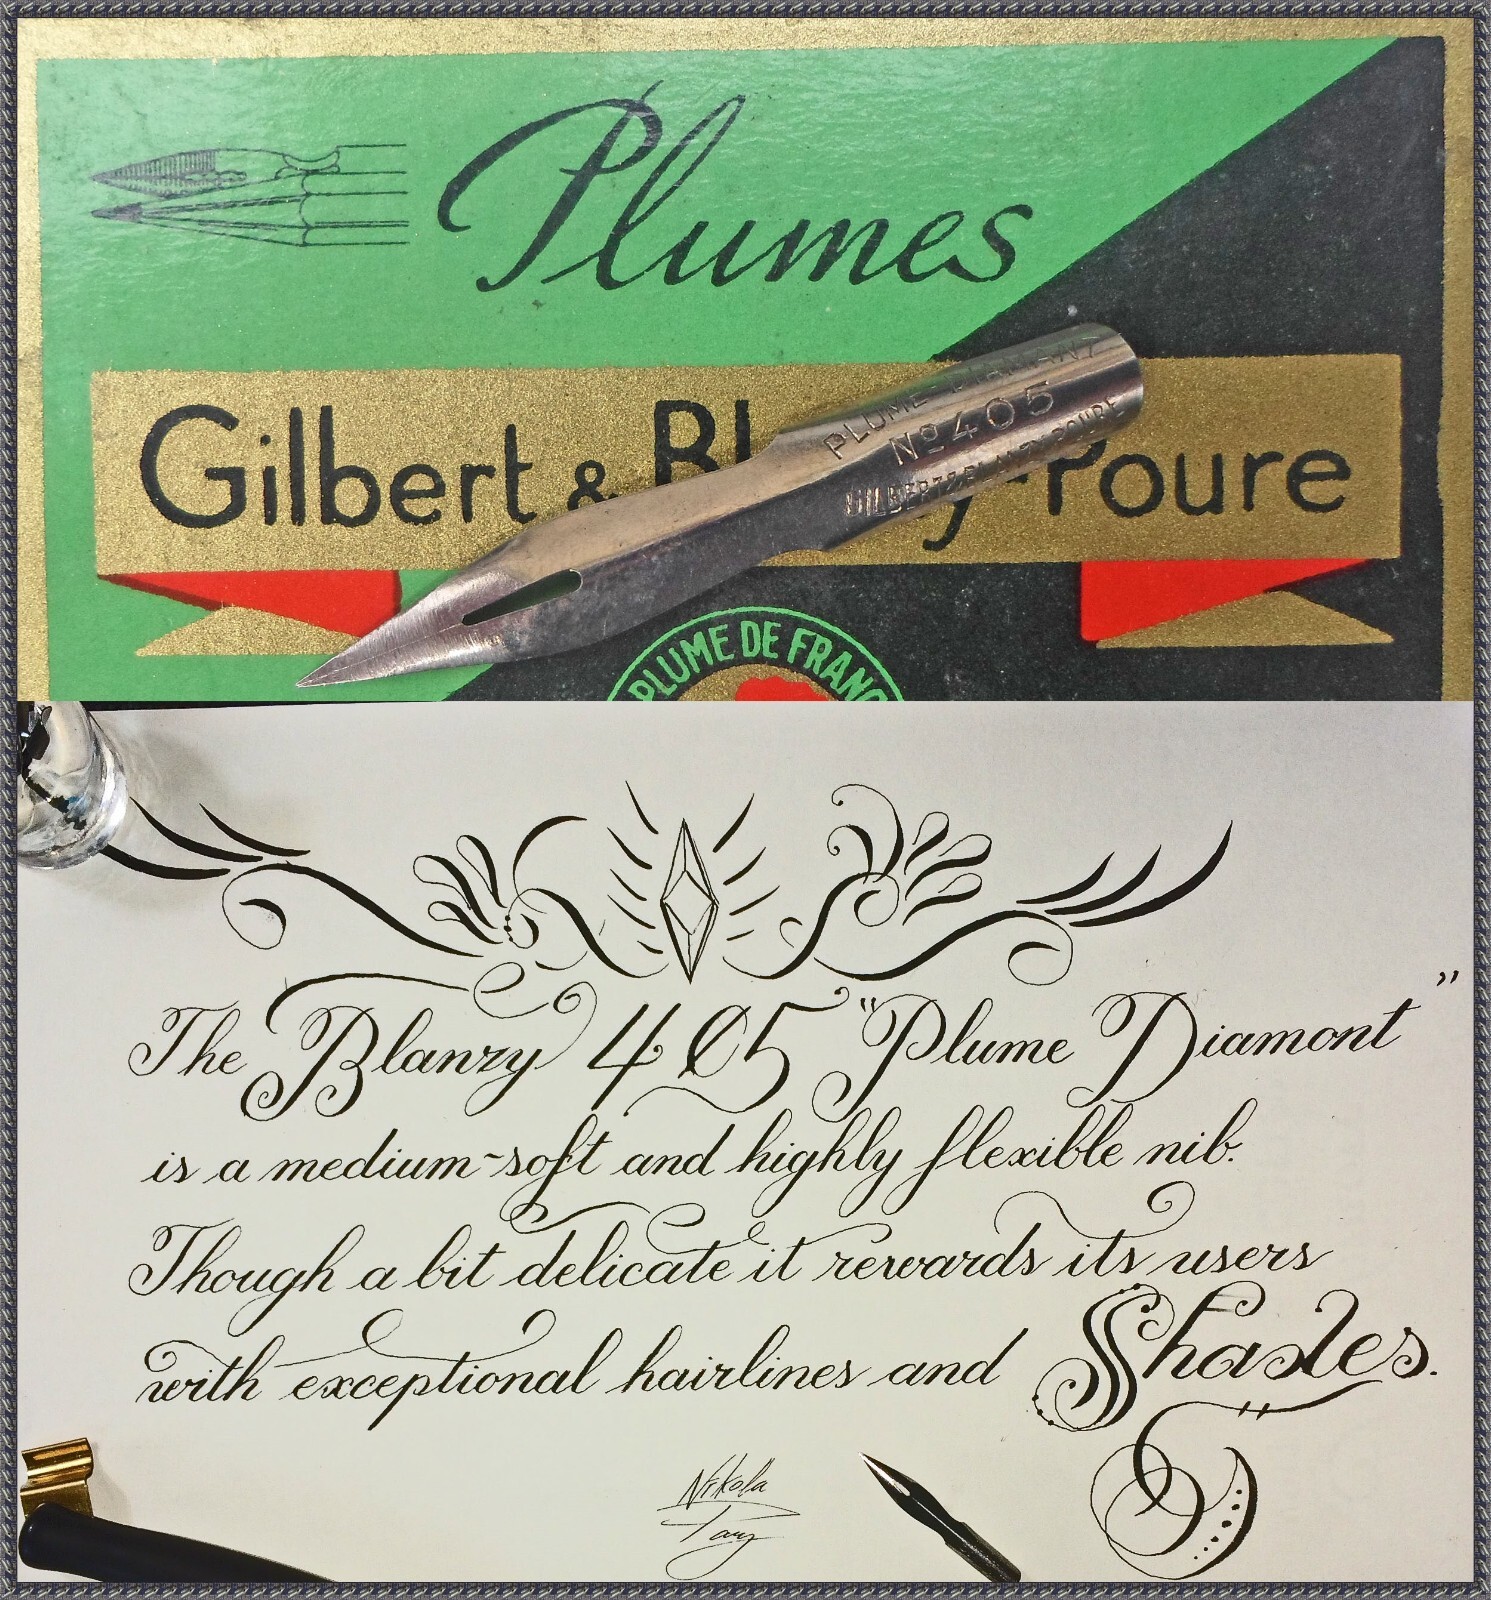 Plumes
Gilbert & Bl y-Poure
PLUME DIAMANT
No 405
GILBERT & BLANZY POURE
PLUME DE FRANC
The Blanzy 405 "Plume Diamont"
is a medium-soft and highly flexible nib.
Though a bit delicate it rewards its users
with exceptional hairlines and Shades.
Nikola